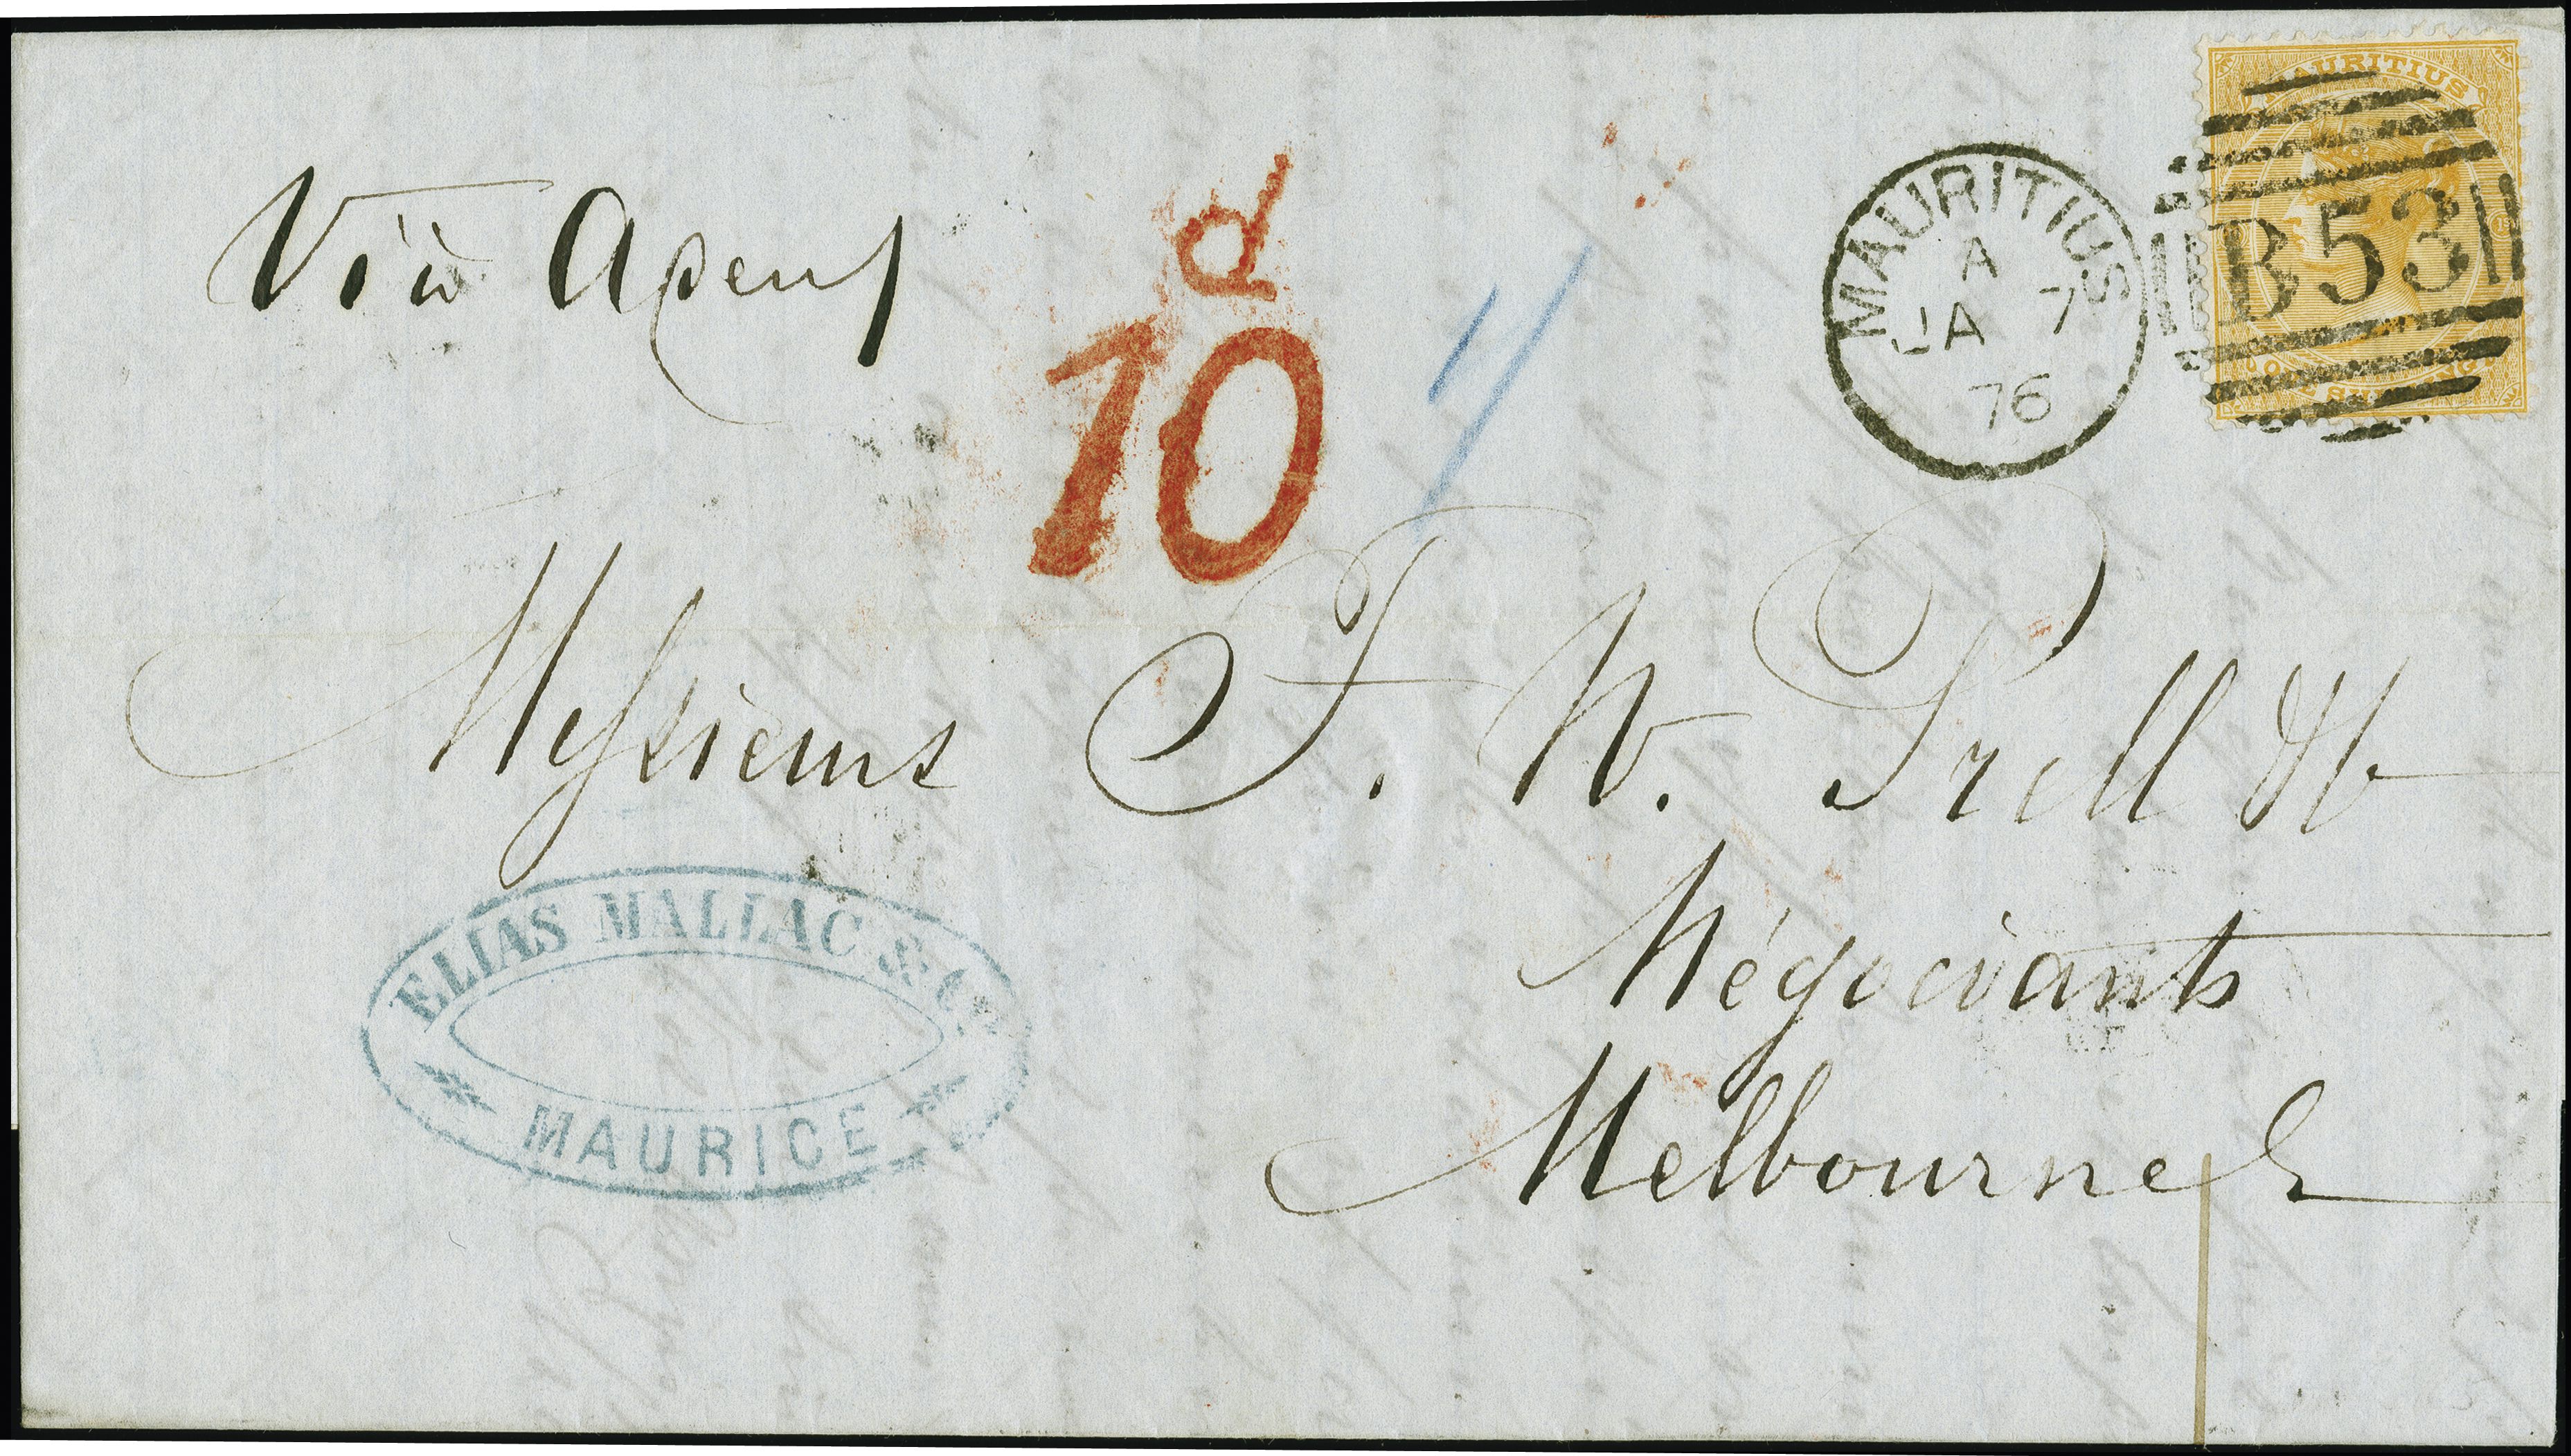 Viâ Aden
d
10
1/
MAURITIUS
A
JA 7
76
MAURITIUS
B53
ONE SHILLING
Messieurs F. W. Prell & Co
Négociants
Melbourne
ELIAS MALLAC & Co
MAURICE